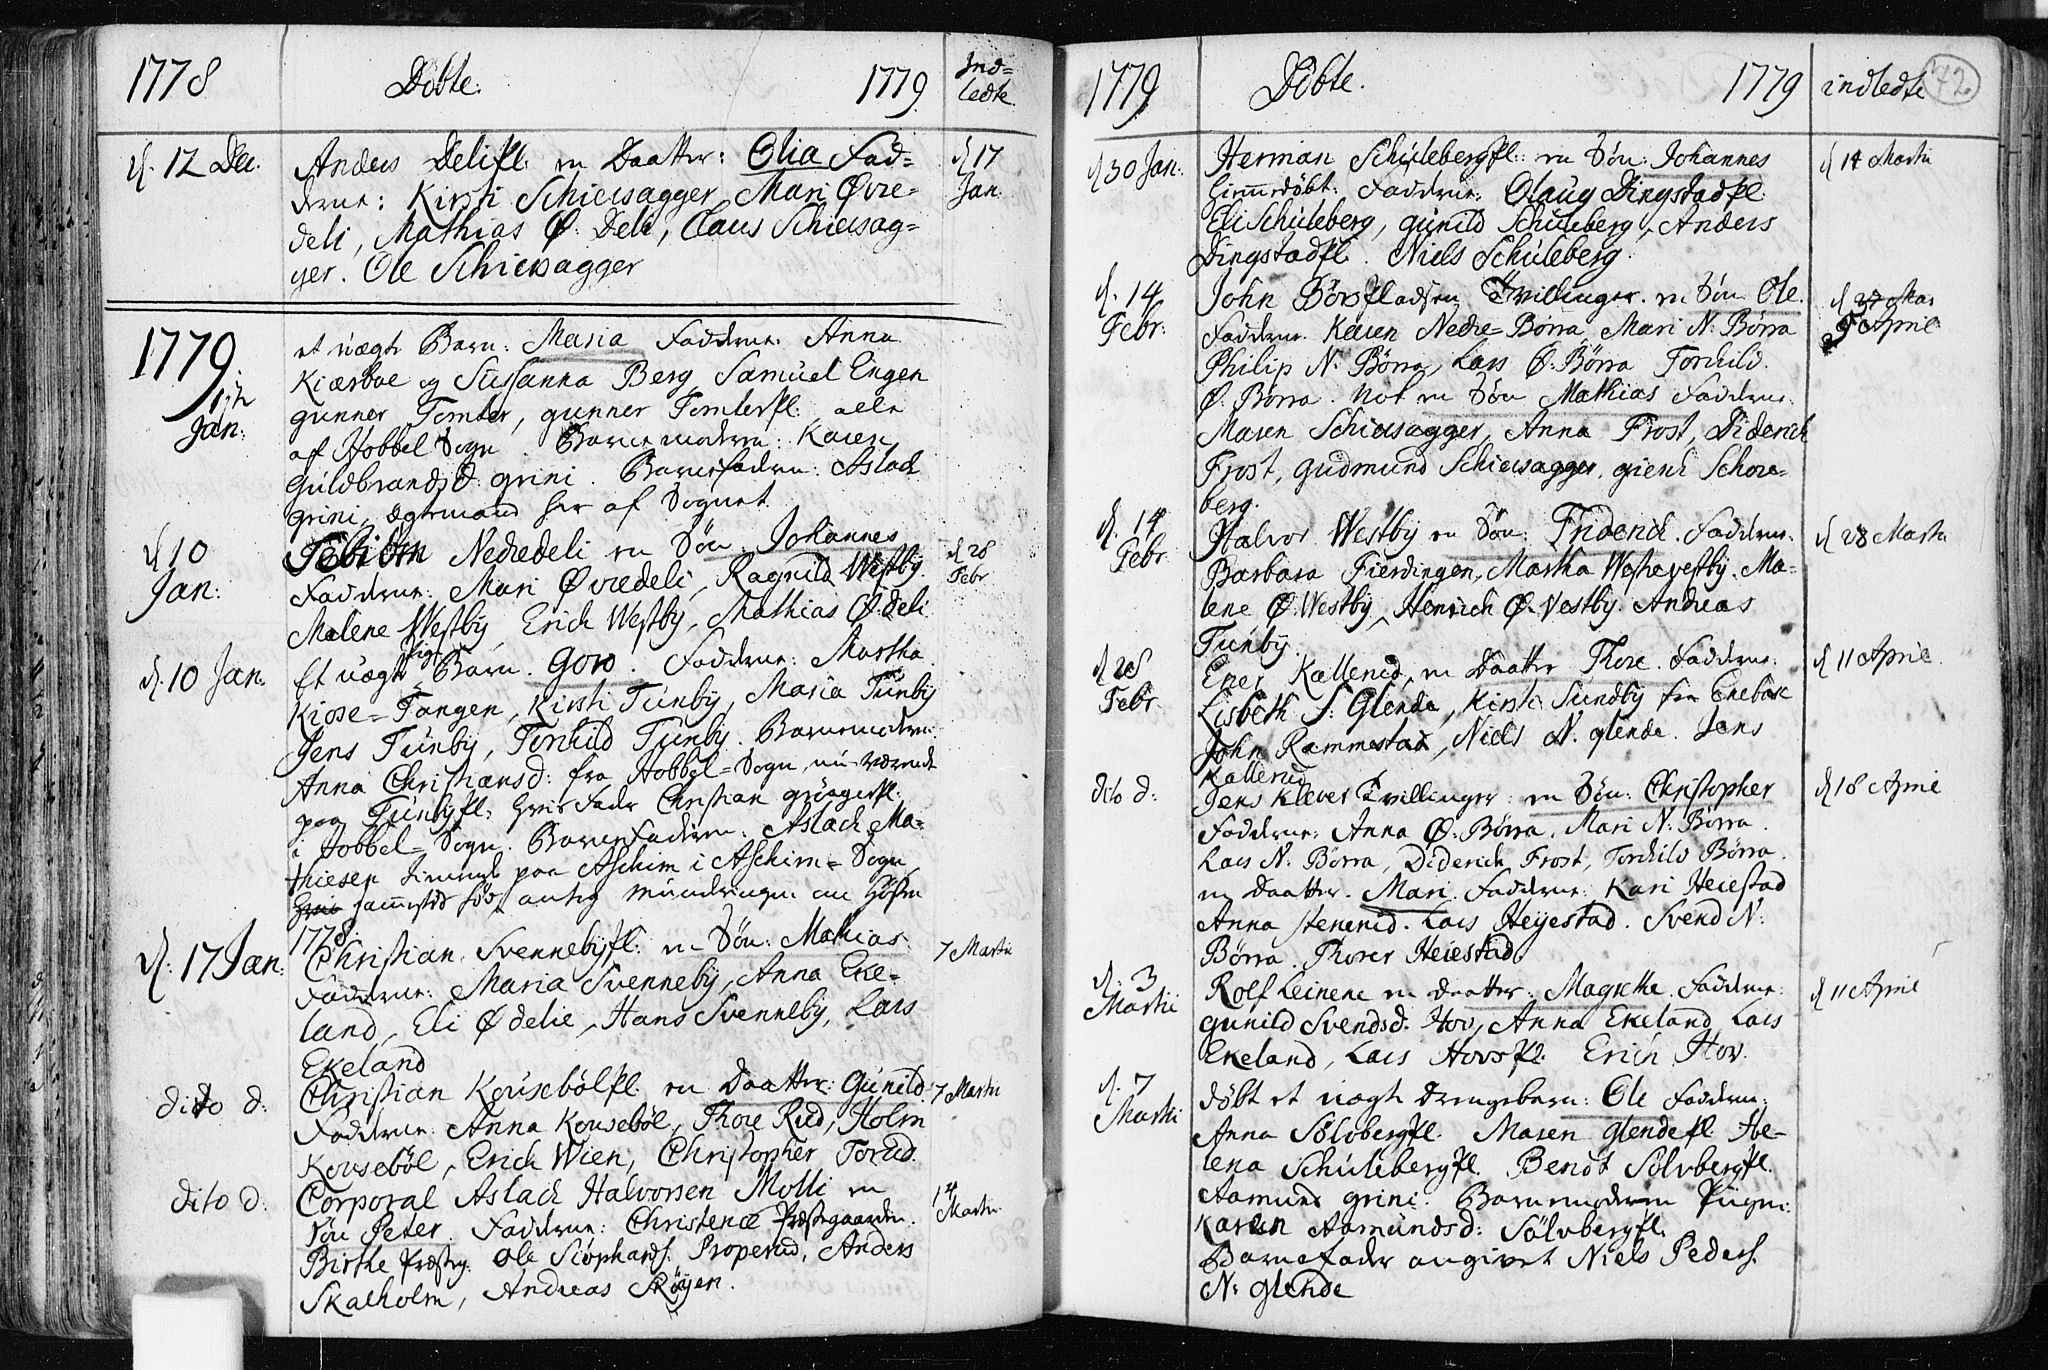 1778 Döbte. 1779 Ind=
ledte.
d. 12 Dec. Anders Delipl. en Daatter: Olia Fad= d 17
derne: Kirsti Schiersagger, Mari Øvre= Jan.
deli, Mathias Ø. Deli, Claus Schiersag=
ger. Ole Schiersagger
1779 et uægte Barn: Maria Fadderne. Anna
Kiærboe og Susanna Berg, Samuel Engen
Jan: gunner Tomter, gunner Tomterpl. alle
af Hobbel Sogn. Barnemoderen: Karen
Guldbrandsd. grini. Barnefaderen: Aslach
grini, ægtemand her af Sognet.
d 10 Nedredeli en Sön Johannes d 28
Jan: Fadderne: Mari Øvredeli, Ragnild Westby Febr
Malene Westby, Erich Westby, Mathias Ø. deli
d. 10 Jan. Et uægte Pige Barn. Goro. Fadderne: Martha
Kiose=Tangen, Kirsti Tunby, Maria Tunby
Jens Tunby, Torchild Tunby. Barnemoderen
Anna Christiansd: fra Hobbel=Sogn, nu værende
paa Tunbypl. hvis Fader Christian
i Hobbel=Sogn. Barnefaderen: Aslach Ma=
thiesen tienende paa Aschim i Aschim=Sogn,
sammested
1778.
d. 17 Jan: Christian Svennebypl. en Sön: Mathias 7 Martii
Fadderne: Maria Svenneby, Anna Eke=
land, Eli Ødelie, Hans Svenneby, Lars
Ekeland
dito d: Christian Kousebölpl. en Daatter: Gunild 7 Martii
Fadderne: Anna Kousebøl, Thore Rud, Holm
Kousebøl, Erich Wien, Christopher Torud.
dito d. Corporal Aslach Halvorsen Molli en 14
Sön Peter. Fadderne: Christence Præstegaarden. Martii
Birthe Præstg. Ole Properud, Anders
Skalholm, Andreas Røyen.
1779 Döbte. 1779 indledte 42
d 30 Jan: Herman Schulebergpl: en Sön: Johannes d 14 Martii
hiemedöbt. Fadderne: Olaug Dingstadpl
Eli Schuleberg, gunild Schuleberg, Anders
Dingstadpl. Niels Schuleberg.
d. 14 John Tvillinger. en Sön Ole. d 27 Mar
Febr: Fadderne. Karen Nedre=Børra, Mari N: Børra April
Philip N: Børra, Lars Ø: Børra Torchild
Ø. Børra. Nok en Sön Mathias Fadderne.
Maren Schiersagger, Anna Frost, Diderich
Frost, Gudmund Schiersagger, Schore=
berg.
d. 14 Halvor Westby en Sön: Friderich. Fadderne. d 28 Martii
Febr. Barbara Fierdingen, Martha Westrevestby. Ma=
lene Ø. Westby, Henrich Ø. Vestby. Andreas
Tunby.
d 28 Ener Kallerud, en Daatter Thore. Fadderne: d 11 April
Febr. Lisbeth S: Glende, Kirsti Sundby fra Eneback
John Rammestad, Niels N. glende. Jens
Kallerud
dito d: Jens Klever Tvillinger: en Sön: Christopher d 18 April
Fadderne: Anna Ø: Børra. Mari N: Børra.
Lars N: Børra, Diderich Frost, Torchild Børra.
en Daatter. Mari. Fadderne: Kari Heiestad
Anna Stenerud. Lars Heyestad. Svend N:
Børra. Thorer Heiestad.
d. 3 Rolf Leinene en Daatter: Magrethe. Fadderne: d 11 April
Martii Gunild Svendsd. Hov, Anna Ekeland, Lars
Ekeland, Lars Hovspl. Erich Hov.
d. 7 döbt et uægte Drengebarn: Ole Fadderne:
Martii Anna Sölvbergpl. Maren glendepl. He=
lena Schulebergpl. Bendt Sölvbergpl.
Aamund grini. Barnemoderen Pigen:
Karen Aamundsd: Sölvbergpl.
Barnefader angivet Niels Peders.
N: glende